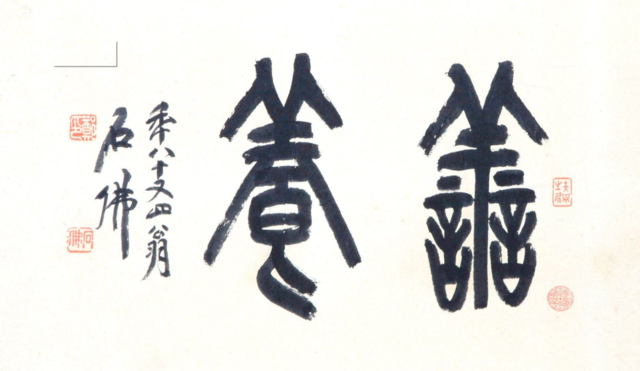 譱養
秊八十又四翁
石佛